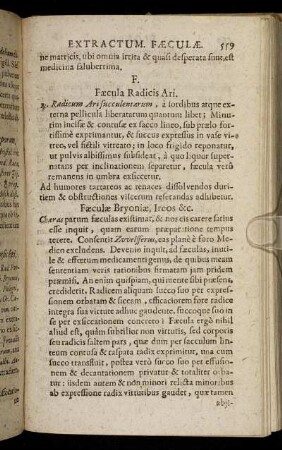 EXTRACTUM. FÆCULÆ. 559
ne matricis, ubi omnia irrita & quasi desperata sunt, est
medicina saluberrima.
F.
Fæcula Radicis Ari.
℞. Radicum Ari succulentarum, à sordibus atque ex-
terna pellicula liberatarum quantum libet; Minu-
tim incisæ & contusæ ex sacco lineo, sub prælo for-
tissimè exprimantur, & succus expressus in vase vi-
treo, vel fictili vitreato; in loco frigido reponatur,
ut pulvis albissimus subsideat, à quo liquor super-
natans per inclinationem separetur, fæcula verò
remanens in umbra exsiccetur.
Ad humores tartareos ac tenaces dissolvendos duri-
tiem & obstructiones viscerum reserandas adhibetur.
Fæculæ Bryoniæ, Ireos &c.
Charas parum fæculas existimat, & nos eis carere satius
esse inquit, quam earum præparatione tempus
terere. Consentit Zwelfferus, eas planè è foro Me-
dico excludens. Devenio inquit, ad fæculas, inuti-
le & effœtum medicamenti genus, de quibus meam
sententiam veris rationibus firmatam jam pridem
præmisi. An enim quispiam, qui mente sibi præsens,
crediderit. Radicem aliquam succo suo per expres-
sionem orbatam & siccam, efficaciorem fore radice
integra sua virtute adhuc gaudente, succoque suo in
se per exsiccationem concreto? Fæcula ergò nihil
aliud est, quàm subtilior non virtutis, sed corporis
seu radicis saltem pars, quæ dum per sacculum lin-
teum contusa & raspata radix exprimitur, una cum
succo transfluit, postea verò succo suo per effusio-
nem & decantationem privatur & totaliter orba-
tur: iisdem autem & non minori relicta minoribus
ab expressione radix virtutibus gaudet, quæ tamen
abji-